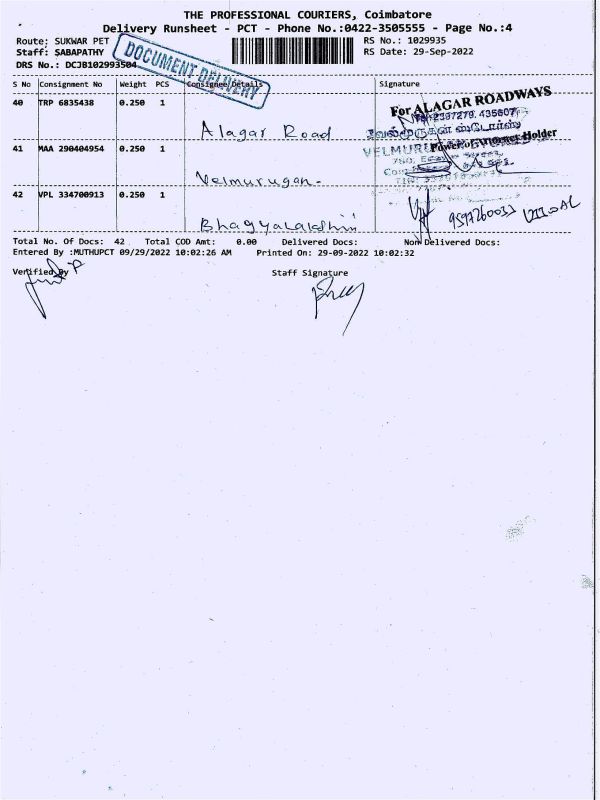 THE PROFESSIONAL COURIERS, Coimbatore
Delivery Runsheet - PCT - Phone No.:0422-3505555 - Page No.:4
Route: SUKWAR PET
RS No.: 1029935
Staff: SABAPATHY
RS Date: 29-Sep-2022
DRS No.: DCJB102993504
DOCUMENT DELIVERY
S No Consignment No Weight PCS Consignee/Details Signature
40 TRP 6835438 0.250 1
For ALAGAR ROADWAYS
Alagar Road
Power of Attorney Holder
41 MAA 290404954 0.250 1
Velmurugan.
42 VPL 334700913 0.250 1
Bhagyalakshmi
9597260033
Total No. Of Docs: 42 Total COD Amt: 0.00 Delivered Docs: Non Delivered Docs:
Entered By :MUTHUPCT 09/29/2022 10:02:26 AM Printed On: 29-09-2022 10:02:32
Verified By
Staff Signature